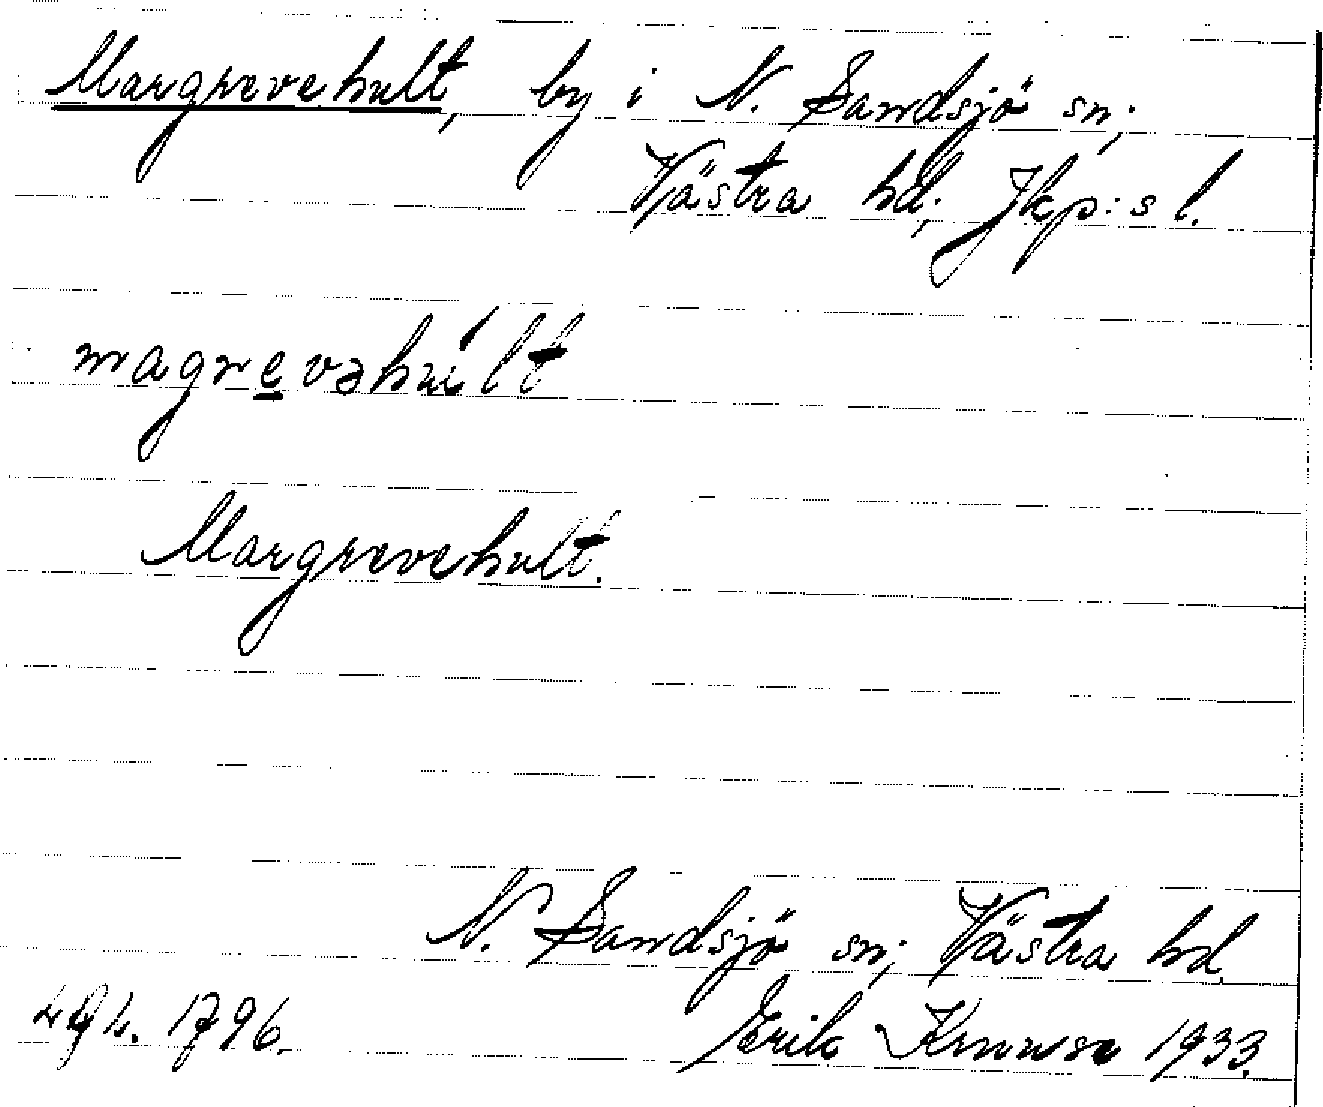 Margrevehult, by i N. Sandsjö sn;
Västra hd; Jkp:s l.
magrevəhúlt
Margrevehult.
N. Sandsjö sn; Västra hd.
1796. Erik 1933.